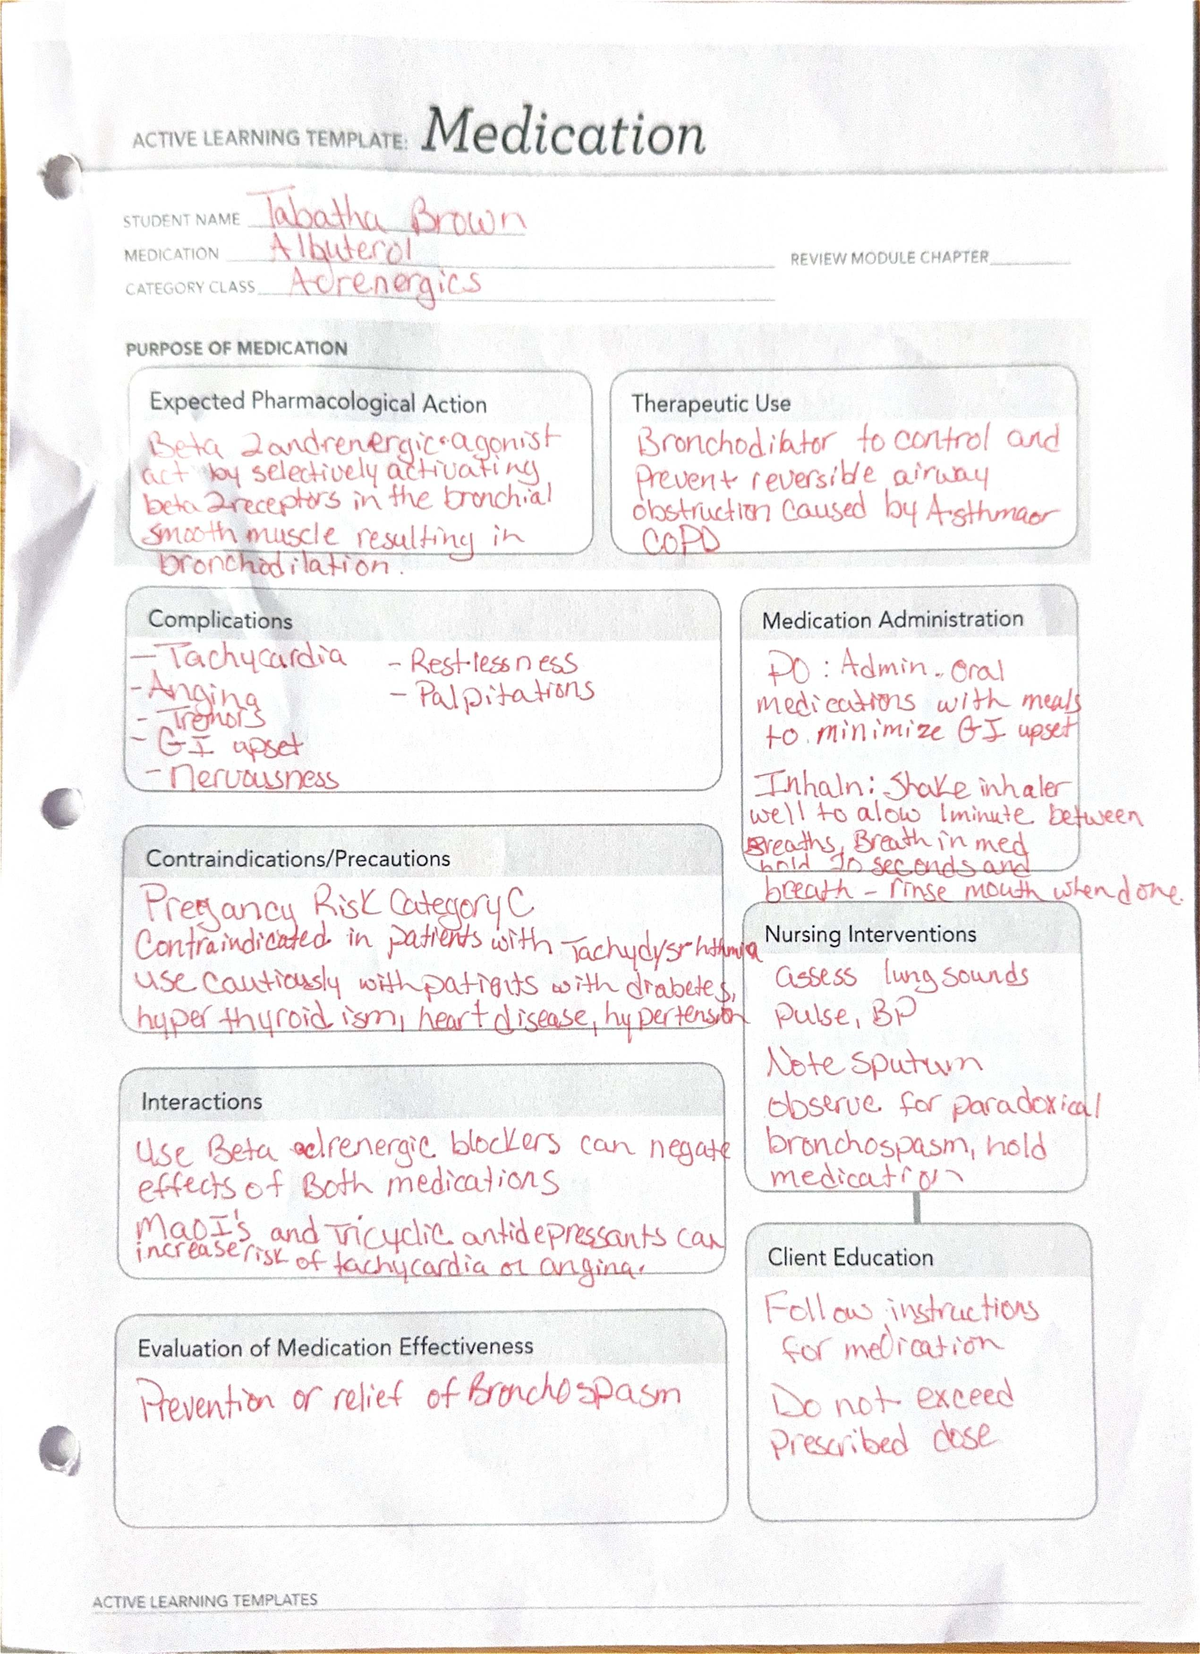 ACTIVE LEARNING TEMPLATE: Medication
STUDENT NAME Tabatha Brown
MEDICATION Albuterol
REVIEW MODULE CHAPTER
CATEGORY CLASS Adrenergics
PURPOSE OF MEDICATION
Expected Pharmacological Action
Beta 2 andrenergic agonist
act by selectively activating
beta 2 receptors in the bronchial
smooth muscle resulting in
bronchodilation.
Therapeutic Use
Bronchodilator to control and
Prevent reversible airway
obstruction caused by Asthma or
COPD
Complications
- Tachycardia
- Angina
- Tremors
- GI upset
- nervousness
- Restlessness
- Palpitations
Medication Administration
PO: Admin. oral
medications with meals
to minimize GI upset
Inhaln: Shake inhaler
well to alow 1 minute between
Breaths, Breath in med
hold 10 seconds and
breath - rinse mouth when done.
Contraindications/Precautions
Pregancy Risk Category C
Contraindicated in patients with Tachydysrhthmia
use cautiously with patients with diabetes,
hyperthyroidism, heart disease, hypertension
Nursing Interventions
assess lung sounds
pulse, BP
Note sputum
observe for paradoxical
bronchospasm, hold
medication
Interactions
Use Beta adrenergic blockers can negate
effects of Both medications
MaoI's and Tricyclic antidepressants can
increase risk of tachycardia or angina.
Client Education
Follow instructions
for medication
Do not exceed
prescribed dose
Evaluation of Medication Effectiveness
Prevention or relief of Bronchospasm
ACTIVE LEARNING TEMPLATES